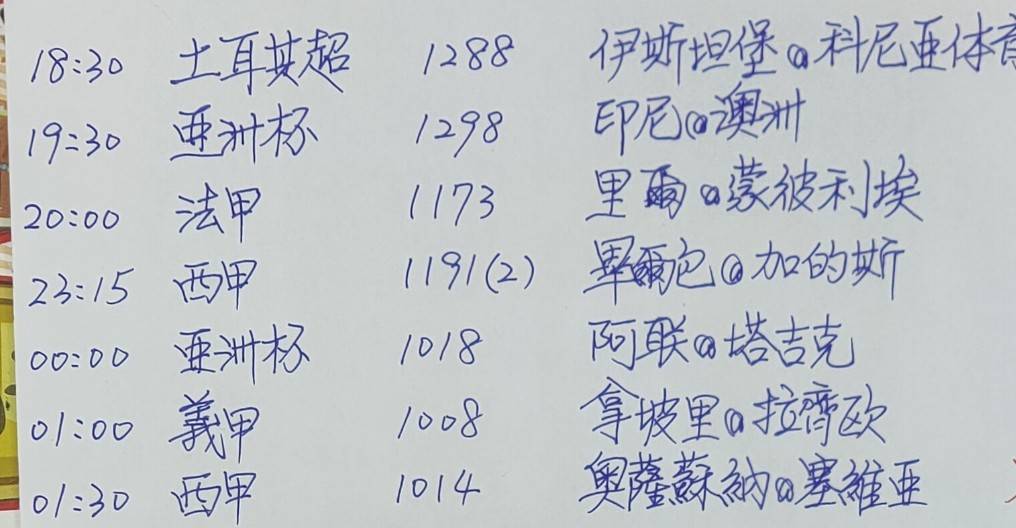 18:30 土耳其超 1288 伊斯坦堡@科尼亚体育
19:30 亜洲杯 1298 印尼@澳洲
20:00 法甲 1173 里爾@蒙彼利埃
23:15 西甲 1191(2) 畢爾包@加的斯
00:00 亜洲杯 1018 阿联@塔吉克
01:00 義甲 1008 拿坡里@拉齊欧
01:30 西甲 1014 奥薩蘇納@塞維亜